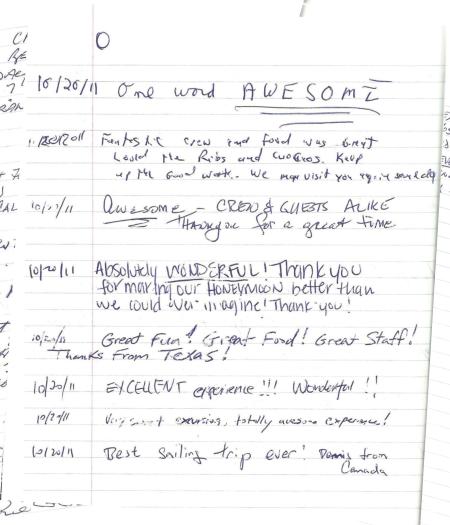 O
10/20/11 One word AWESOME
Fantastic crew and food was Great
Loved the Ribs and
up the Good work. We may visit you again someday
Awesome - CREW & GUESTS ALIKE
Thank you for a great time
10/20/11 Absolutely WONDERFUL! Thank you
for making our HONEYMOON better than
we could ever imagine! Thank you!
10/20/11 Great Fun! Great Food! Great Staff!
Thanks From Texas!
10/20/11 EXCELLENT experience!!! Wonderful!!
10/20/11 excursion, totally awesome experience!
10/20/11 Best Sailing trip ever! from
Canada